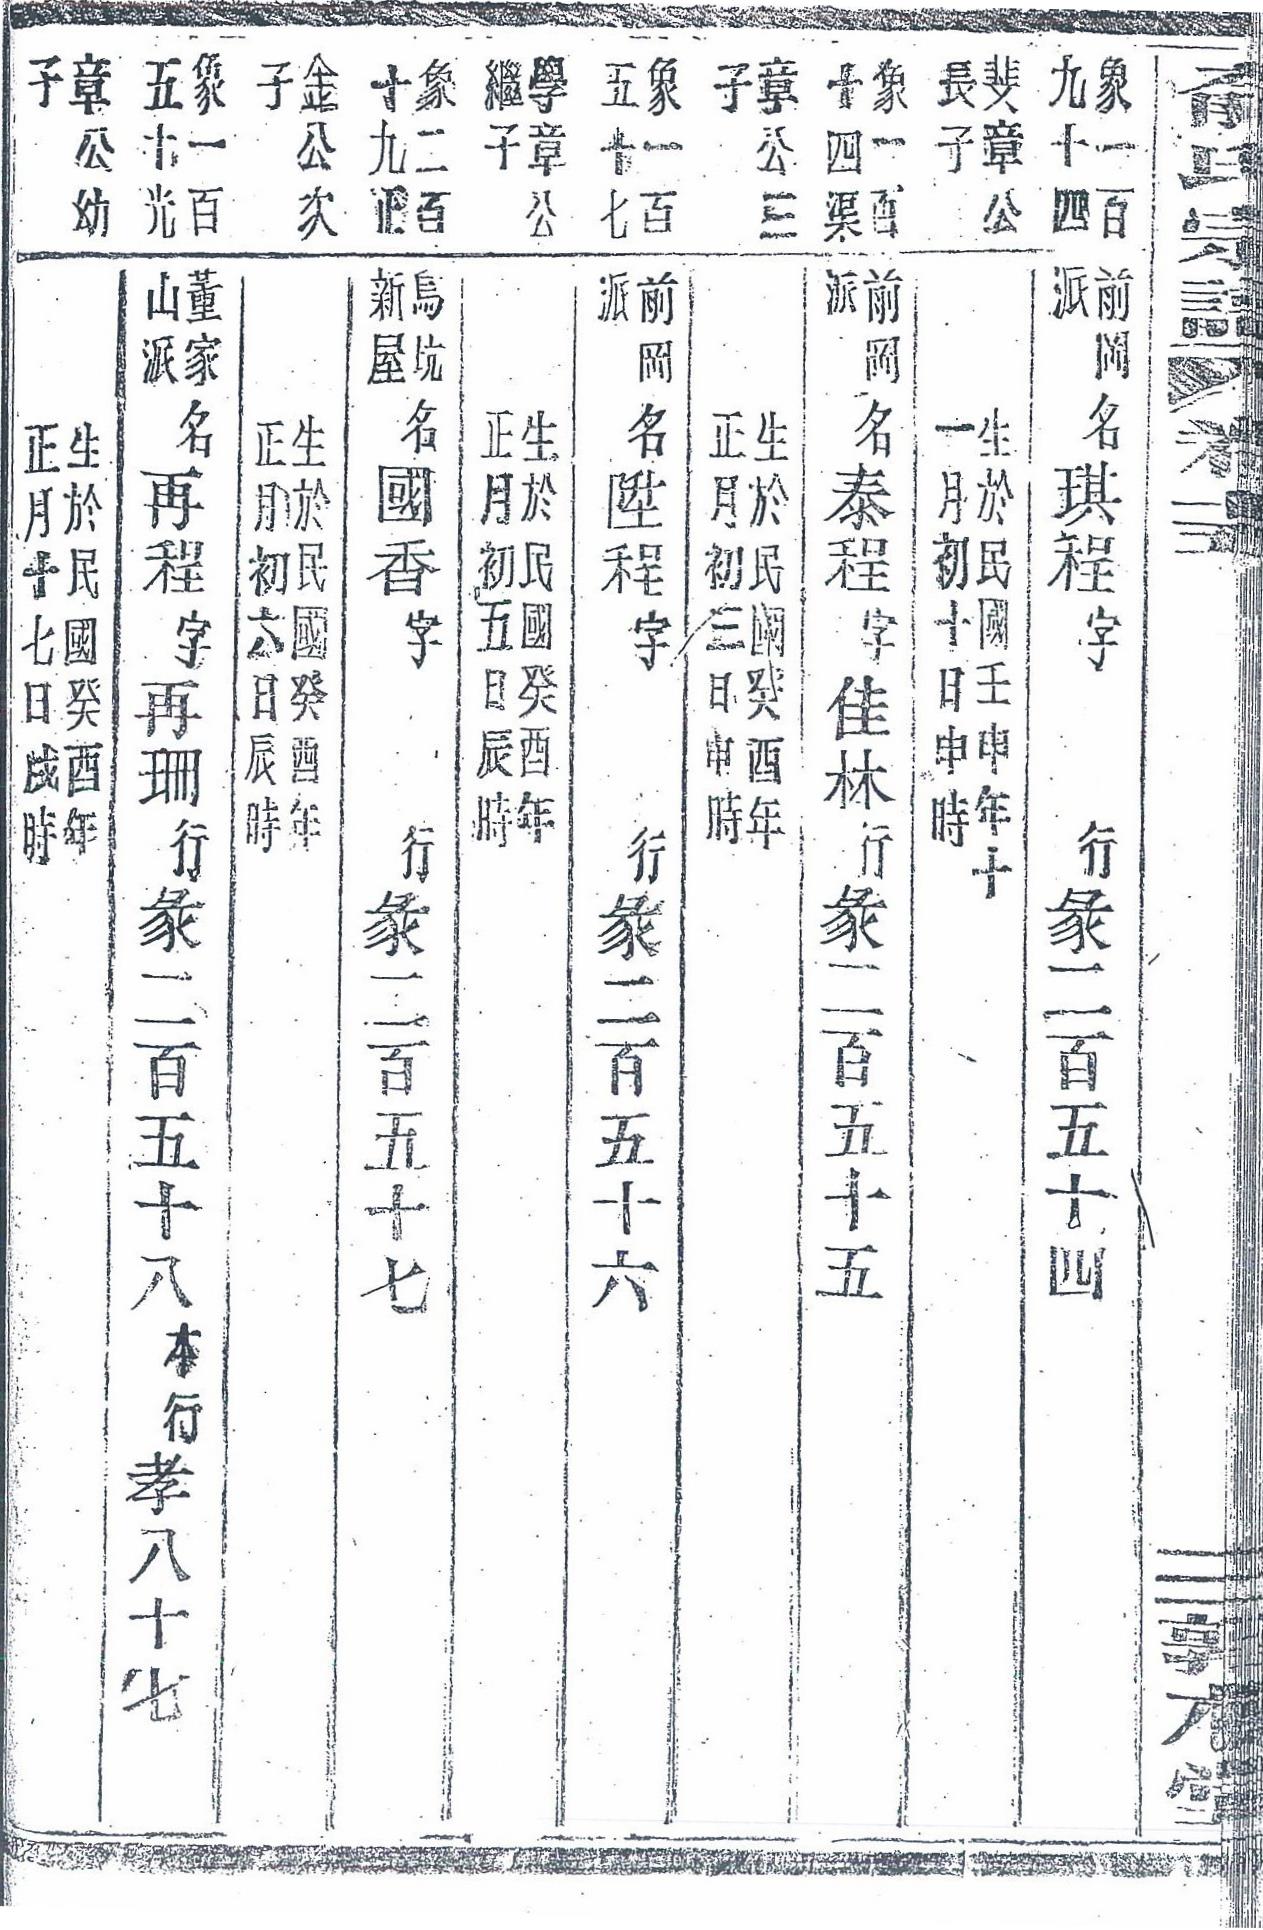 象一百
九十四
斐章公
長子
前岡
派
名琪程字 行彖二百五十四
生於民國壬申年十
一月初十日申時
象一百
十四渠
章公三
子
前岡
派
名泰程字佳林行彖二百五十五
生於民國癸酉年
正月初三日申時
象一百
五十七
學章公
繼子
前岡
派
名陞程字 行彖二百五十六
生於民國癸酉年
正月初五日辰時
象二百
十九正
金公次
子
烏坑
新屋
名國香字 行彖二百五十七
生於民國癸酉年
正月初六日辰時
象一百
五十光
章公幼
子
董家
山派
名再程字再珊行彖二百五十八本行孝八十七
生於民國癸酉年
正月十七日戌時